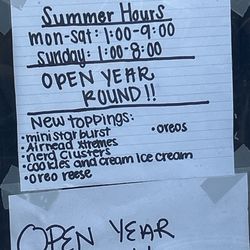 Summer Hours
mon-sat: 1:00-9:00
sunday: 1:00-8:00
OPEN YEAR
ROUND!!
New toppings:
• ministarburst • oreos
• Airhead xtremes
• nerd clusters
• cookies and cream Ice cream
• oreo reese
OPEN YEAR